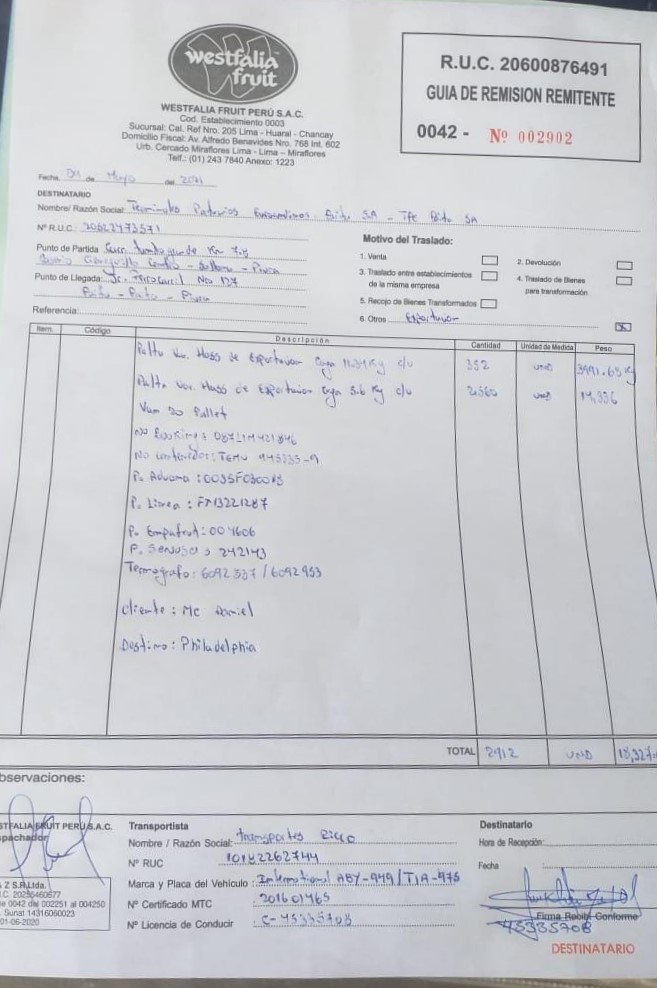 westfalia
fruit
WESTFALIA FRUIT PERÚ S.A.C.
Cod. Establecimiento 0003
Sucursal: Cal. Ref Nro. 205 Lima - Huaral - Chancay
Domicilio Fiscal: Av. Alfredo Benavides Nro. 768 Int. 602
Urb. Cercado Miraflores Lima - Lima – Miraflores
Telf.: (01) 243 7840 Anexo: 1223
R.U.C. 20600876491
GUIA DE REMISION REMITENTE
0042 - Nº 002902
Fecha, 04 de Mayo del 2021
DESTINATARIO
Nombre/ Razón Social: Terminales Portuarios Euroandinos Paita SA - TPE Paita SA
Nº R.U.C: 20522473571
Punto de Partida Carr. Tambogrande Km 7.8
Sullana - Piura
Punto de Llegada: Jr. Ferrocarril No 127
Paita - Paita - Piura
Referencia:
Motivo del Traslado:
1. Venta
2. Devolución
3. Traslado entre establecimientos
de la misma empresa
4. Traslado de Bienes
para transformación
5. Recojo de Bienes Transformados
6. Otros Exportacion X
Item. Código Descripción Cantidad Unidad de Medida Peso
Palta Var. Hass de Exportacion Caja 11.34 Kg c/u 352 UND 3991.68 Kg
Palta Var. Hass de Exportacion Caja 5.6 Kg c/u 2560 UND 14,336
Van 20 Pallet
No Booking: 087LIM421846
No contenedor: TEMU 945335-9
P. Aduana:
P. Linea : FA13221287
P. Empafrut: 004606
P. Senasa: 242143
Termografo: 6092537 / 6092953
Cliente : Mc Daniel
Destino : Philadelphia
TOTAL 2912 UND 18,327
bservaciones:
STFALIA FRUIT PERÚ S.A.C.
spachador
Z S.R.Ltda.
C. 20256460677
e 0042 del 002251 al 004250
. Sunat 14316060023
01-06-2020
Transportista
Nombre / Razón Social: Transportes Ricco
Nº RUC 10182262744
Marca y Placa del Vehículo : International A8Y-949/T1A-975
Nº Certificado MTC : 201601465
Nº Licencia de Conducir : C-45335708
Destinatario
Hora de Recepción:
Fecha
Firma Recibi Conforme
45335708
DESTINATARIO